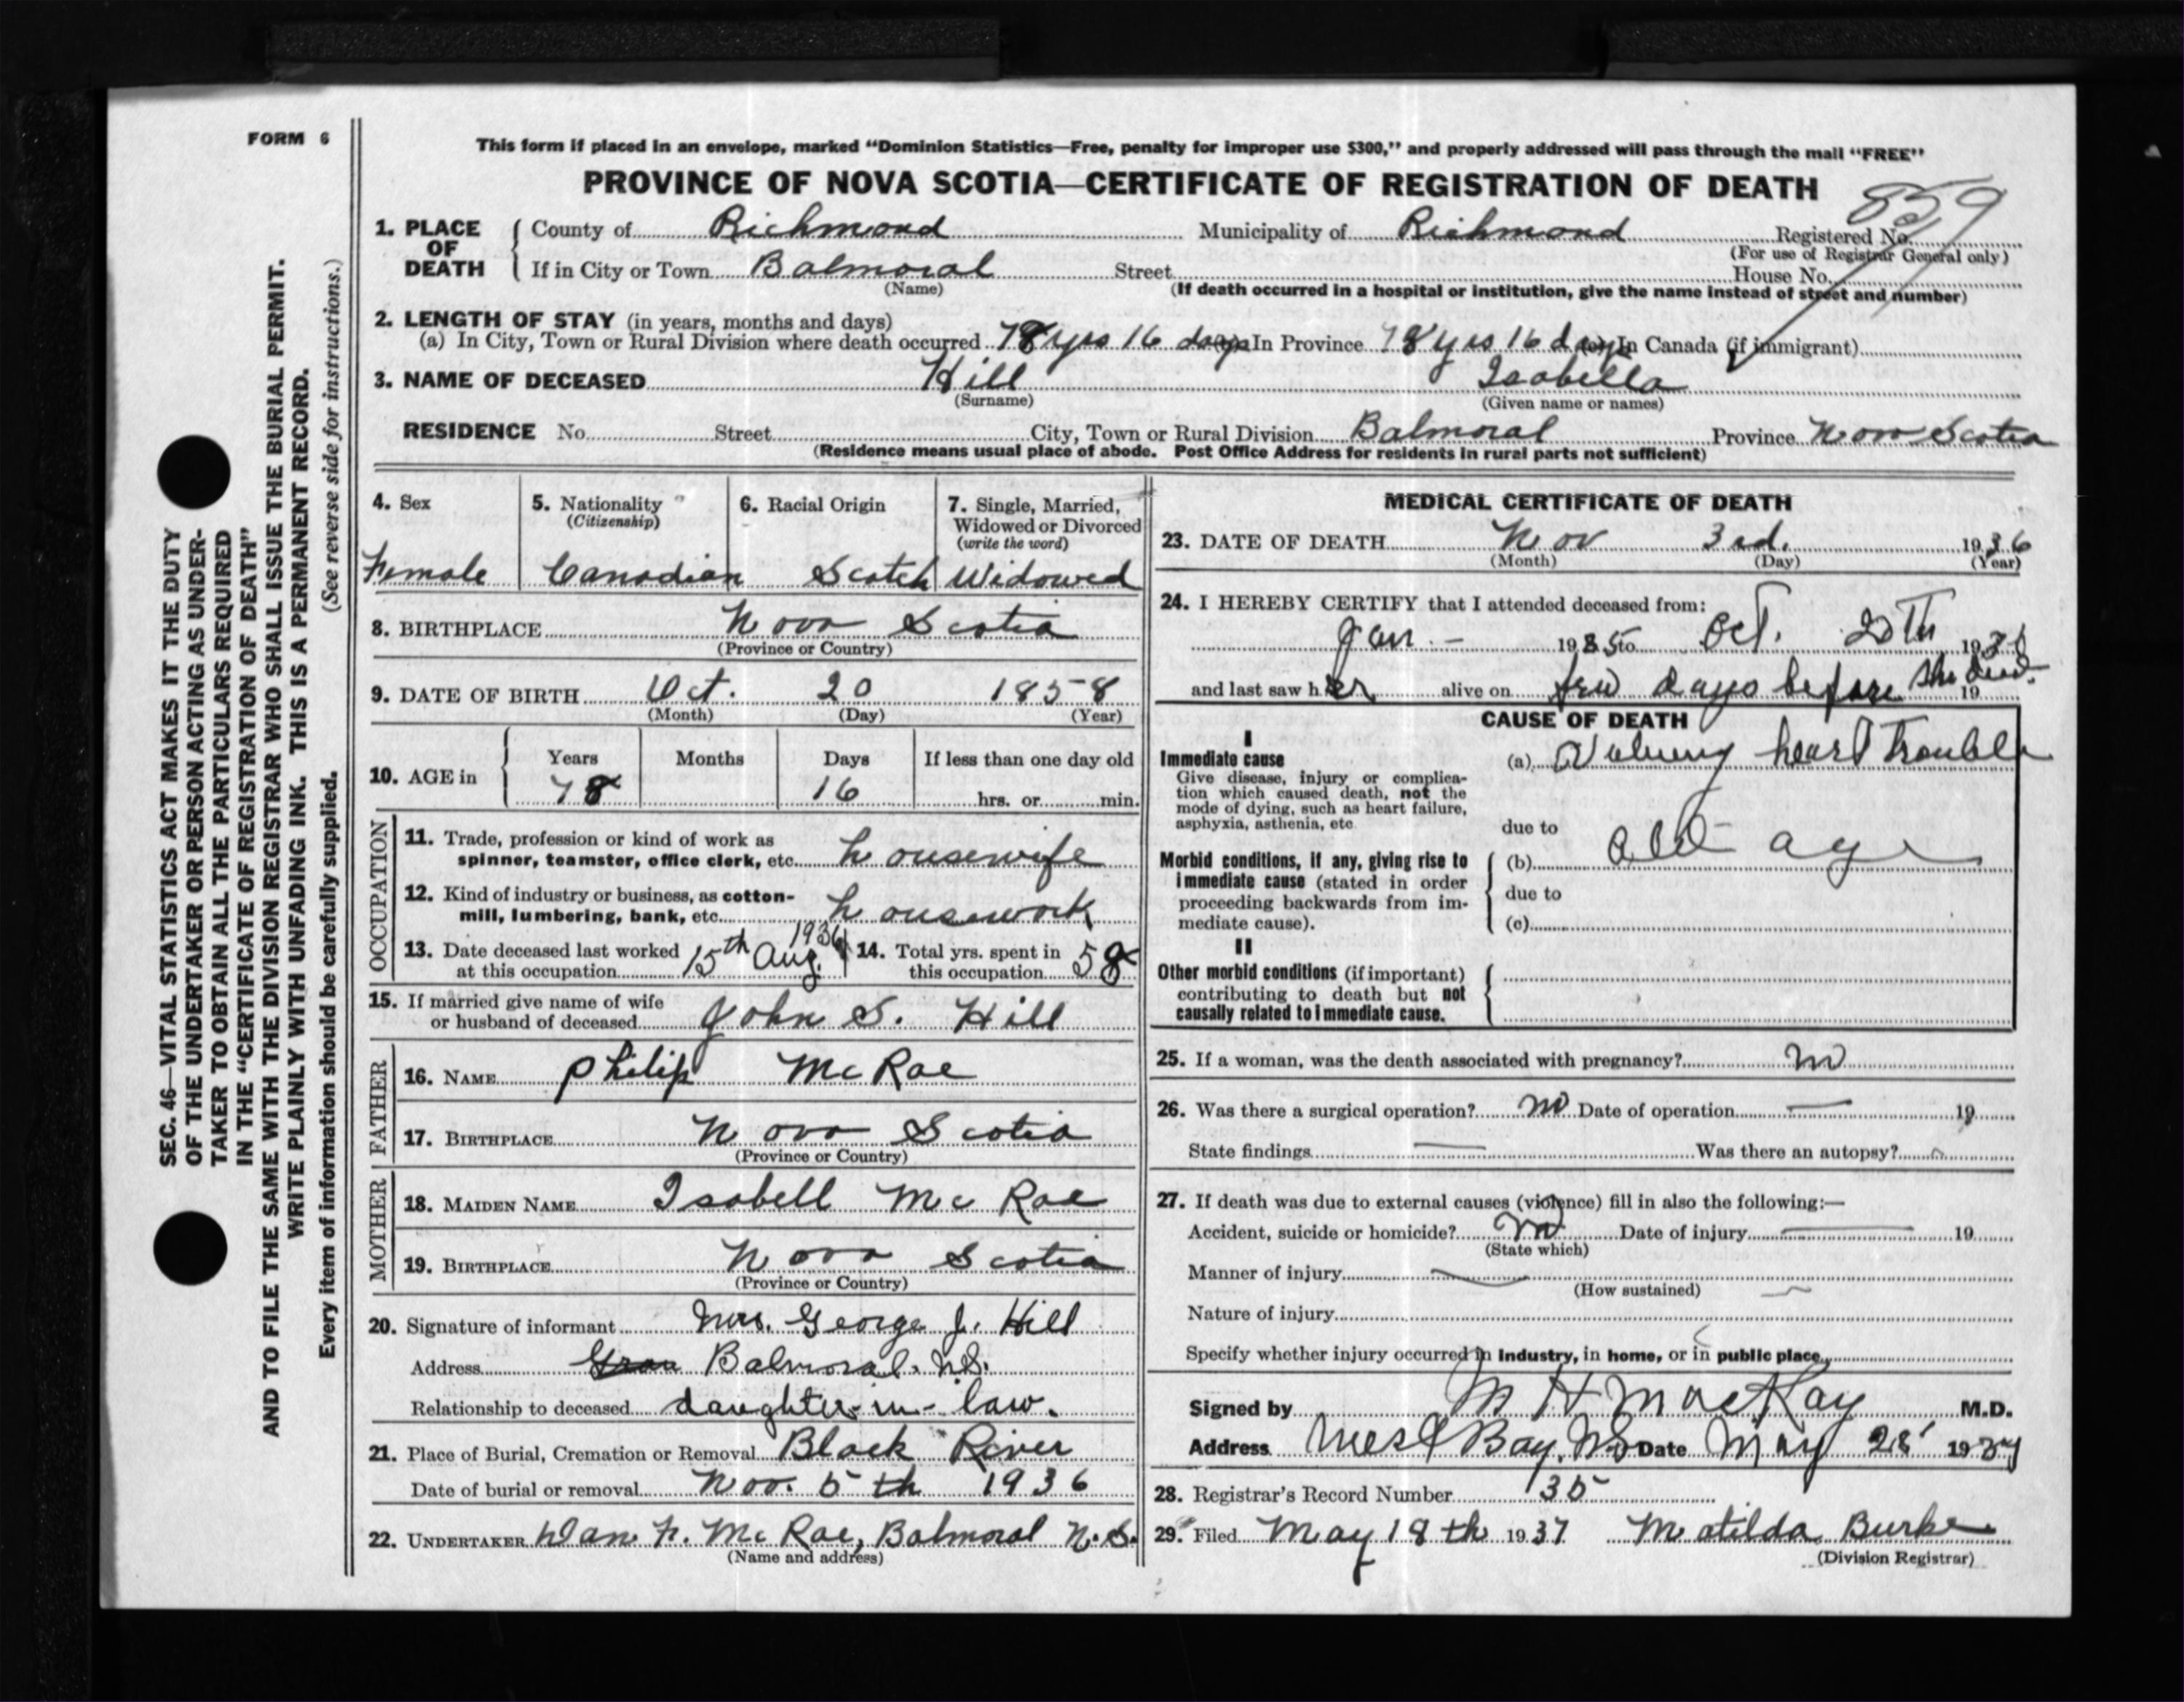 FORM 6
This form if placed in an envelope, marked “Dominion Statistics—Free, penalty for improper use $300,” and properly addressed will pass through the mail “FREE”
PROVINCE OF NOVA SCOTIA—CERTIFICATE OF REGISTRATION OF DEATH
859
1. PLACE OF DEATH { County of Richmond Municipality of Richmond Registered No.
(For use of Registrar General only)
If in City or Town Balmoral Street House No.
(Name) (If death occurred in a hospital or institution, give the name instead of street and number)
2. LENGTH OF STAY (in years, months and days)
(a) In City, Town or Rural Division where death occurred 78 yrs 16 days In Province 78 yrs 16 days In Canada (if immigrant)
3. NAME OF DECEASED Hill Isabella
(Surname) (Given name or names)
RESIDENCE No. Street City, Town or Rural Division Balmoral Province Nova Scotia
(Residence means usual place of abode. Post Office Address for residents in rural parts not sufficient)
4. Sex 5. Nationality (Citizenship) 6. Racial Origin 7. Single, Married, Widowed or Divorced (write the word)
Female Canadian Scotch Widowed
8. BIRTHPLACE Nova Scotia
(Province or Country)
9. DATE OF BIRTH Oct. 20 1858
(Month) (Day) (Year)
10. AGE in Years Months Days If less than one day old
78 16 hrs. or min.
OCCUPATION
11. Trade, profession or kind of work as
spinner, teamster, office clerk, etc. housewife
12. Kind of industry or business, as cotton-
mill, lumbering, bank, etc. housework
13. Date deceased last worked at this occupation 15th Aug. 1936 14. Total yrs. spent in this occupation 58
15. If married give name of wife
or husband of deceased John S. Hill
FATHER
16. NAME Philip McRae
17. BIRTHPLACE Nova Scotia
(Province or Country)
MOTHER
18. MAIDEN NAME Isobell Mc Rae
19. BIRTHPLACE Nova Scotia
(Province or Country)
20. Signature of informant Mrs. George J. Hill
Address Balmoral. N.S.
Relationship to deceased daughter-in-law.
21. Place of Burial, Cremation or Removal Black River
Date of burial or removal Nov. 5th 1936
22. UNDERTAKER Dan F. McRae, Balmoral N.S.
(Name and address)
MEDICAL CERTIFICATE OF DEATH
23. DATE OF DEATH Nov 3rd. 1936
(Month) (Day) (Year)
24. I HEREBY CERTIFY that I attended deceased from:
Jan. – 1935 to Oct. 20Th 1936
and last saw her alive on few days before she died. 19
CAUSE OF DEATH
I
Immediate cause (a) heart trouble
Give disease, injury or complica-
tion which caused death, not the
mode of dying, such as heart failure,
asphyxia, asthenia, etc
due to
Morbid conditions, if any, giving rise to (b) old age
immediate cause (stated in order
proceeding backwards from im-
mediate cause).
due to
(c)
II
Other morbid conditions (if important)
contributing to death but not
causally related to immediate cause.
25. If a woman, was the death associated with pregnancy? no
26. Was there a surgical operation? no Date of operation — 19
State findings — Was there an autopsy?
27. If death was due to external causes (violence) fill in also the following:—
Accident, suicide or homicide? no Date of injury — 19
(State which)
Manner of injury
(How sustained)
Nature of injury
Specify whether injury occurred in industry, in home, or in public place
Signed by M H MacKay M.D.
Address West Bay, N.S. Date May 28 1937
28. Registrar's Record Number 35
29. Filed May 18th 1937 Matilda Burke
(Division Registrar)
SEC. 46—VITAL STATISTICS ACT MAKES IT THE DUTY
OF THE UNDERTAKER OR PERSON ACTING AS UNDER-
TAKER TO OBTAIN ALL THE PARTICULARS REQUIRED
IN THE “CERTIFICATE OF REGISTRATION OF DEATH”
AND TO FILE THE SAME WITH THE DIVISION REGISTRAR WHO SHALL ISSUE THE BURIAL PERMIT.
WRITE PLAINLY WITH UNFADING INK. THIS IS A PERMANENT RECORD.
Every item of information should be carefully supplied. (See reverse side for instructions.)